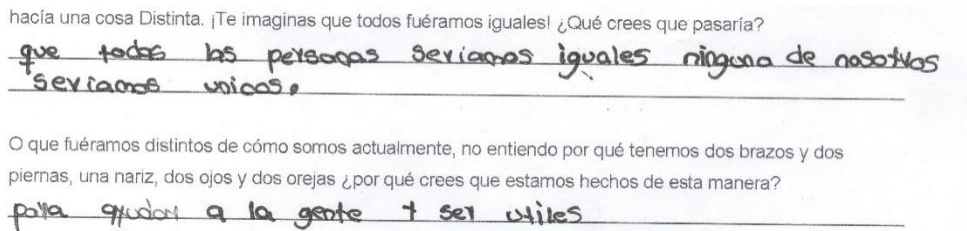 hacía una cosa Distinta. ¡Te imaginas que todos fuéramos iguales! ¿Qué crees que pasaría?
que todas las personas seriamos iguales ninguna de nosotros
seriamos unicas.
O que fuéramos distintos de cómo somos actualmente, no entiendo por qué tenemos dos brazos y dos
piernas, una nariz, dos ojos y dos orejas ¿por qué crees que estamos hechos de esta manera?
para ayudar a la gente y ser utiles